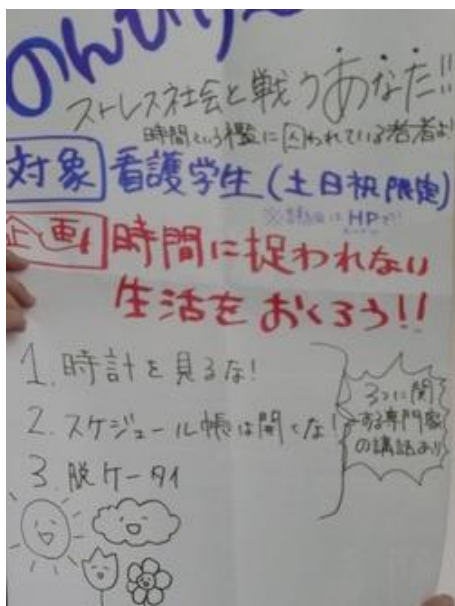 のんびり
ストレス社会と戦うあなた!!
時間という檻に囚われている若者よ!
対象 看護学生(土日祝限定)
※詳細はHPで!!
企画 時間に捉われない
生活をおくろう!!
1. 時計を見るな!
2. スケジュール帳は開くな!
3. 脱ケータイ
3つに関
する専門家
の講話あり